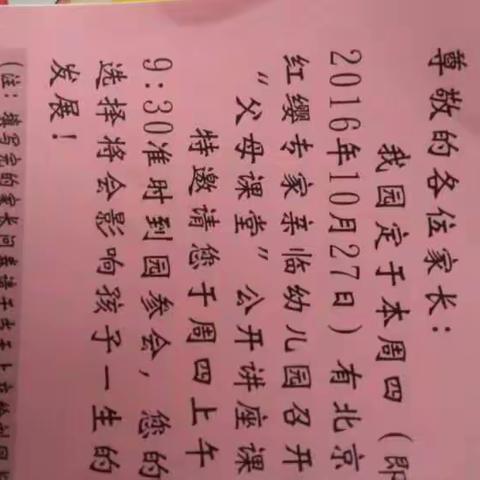 尊敬的各位家长：
我园定于本周四（即
2016年10月27日）有北京
红缨专家亲临幼儿园召开
“父母课堂”公开讲座课
特邀请您于周四上午
9:30准时到园参会，您的
选择将会影响孩子一生的
发展！
（注：填写完的家长问卷请于当天上交给到园